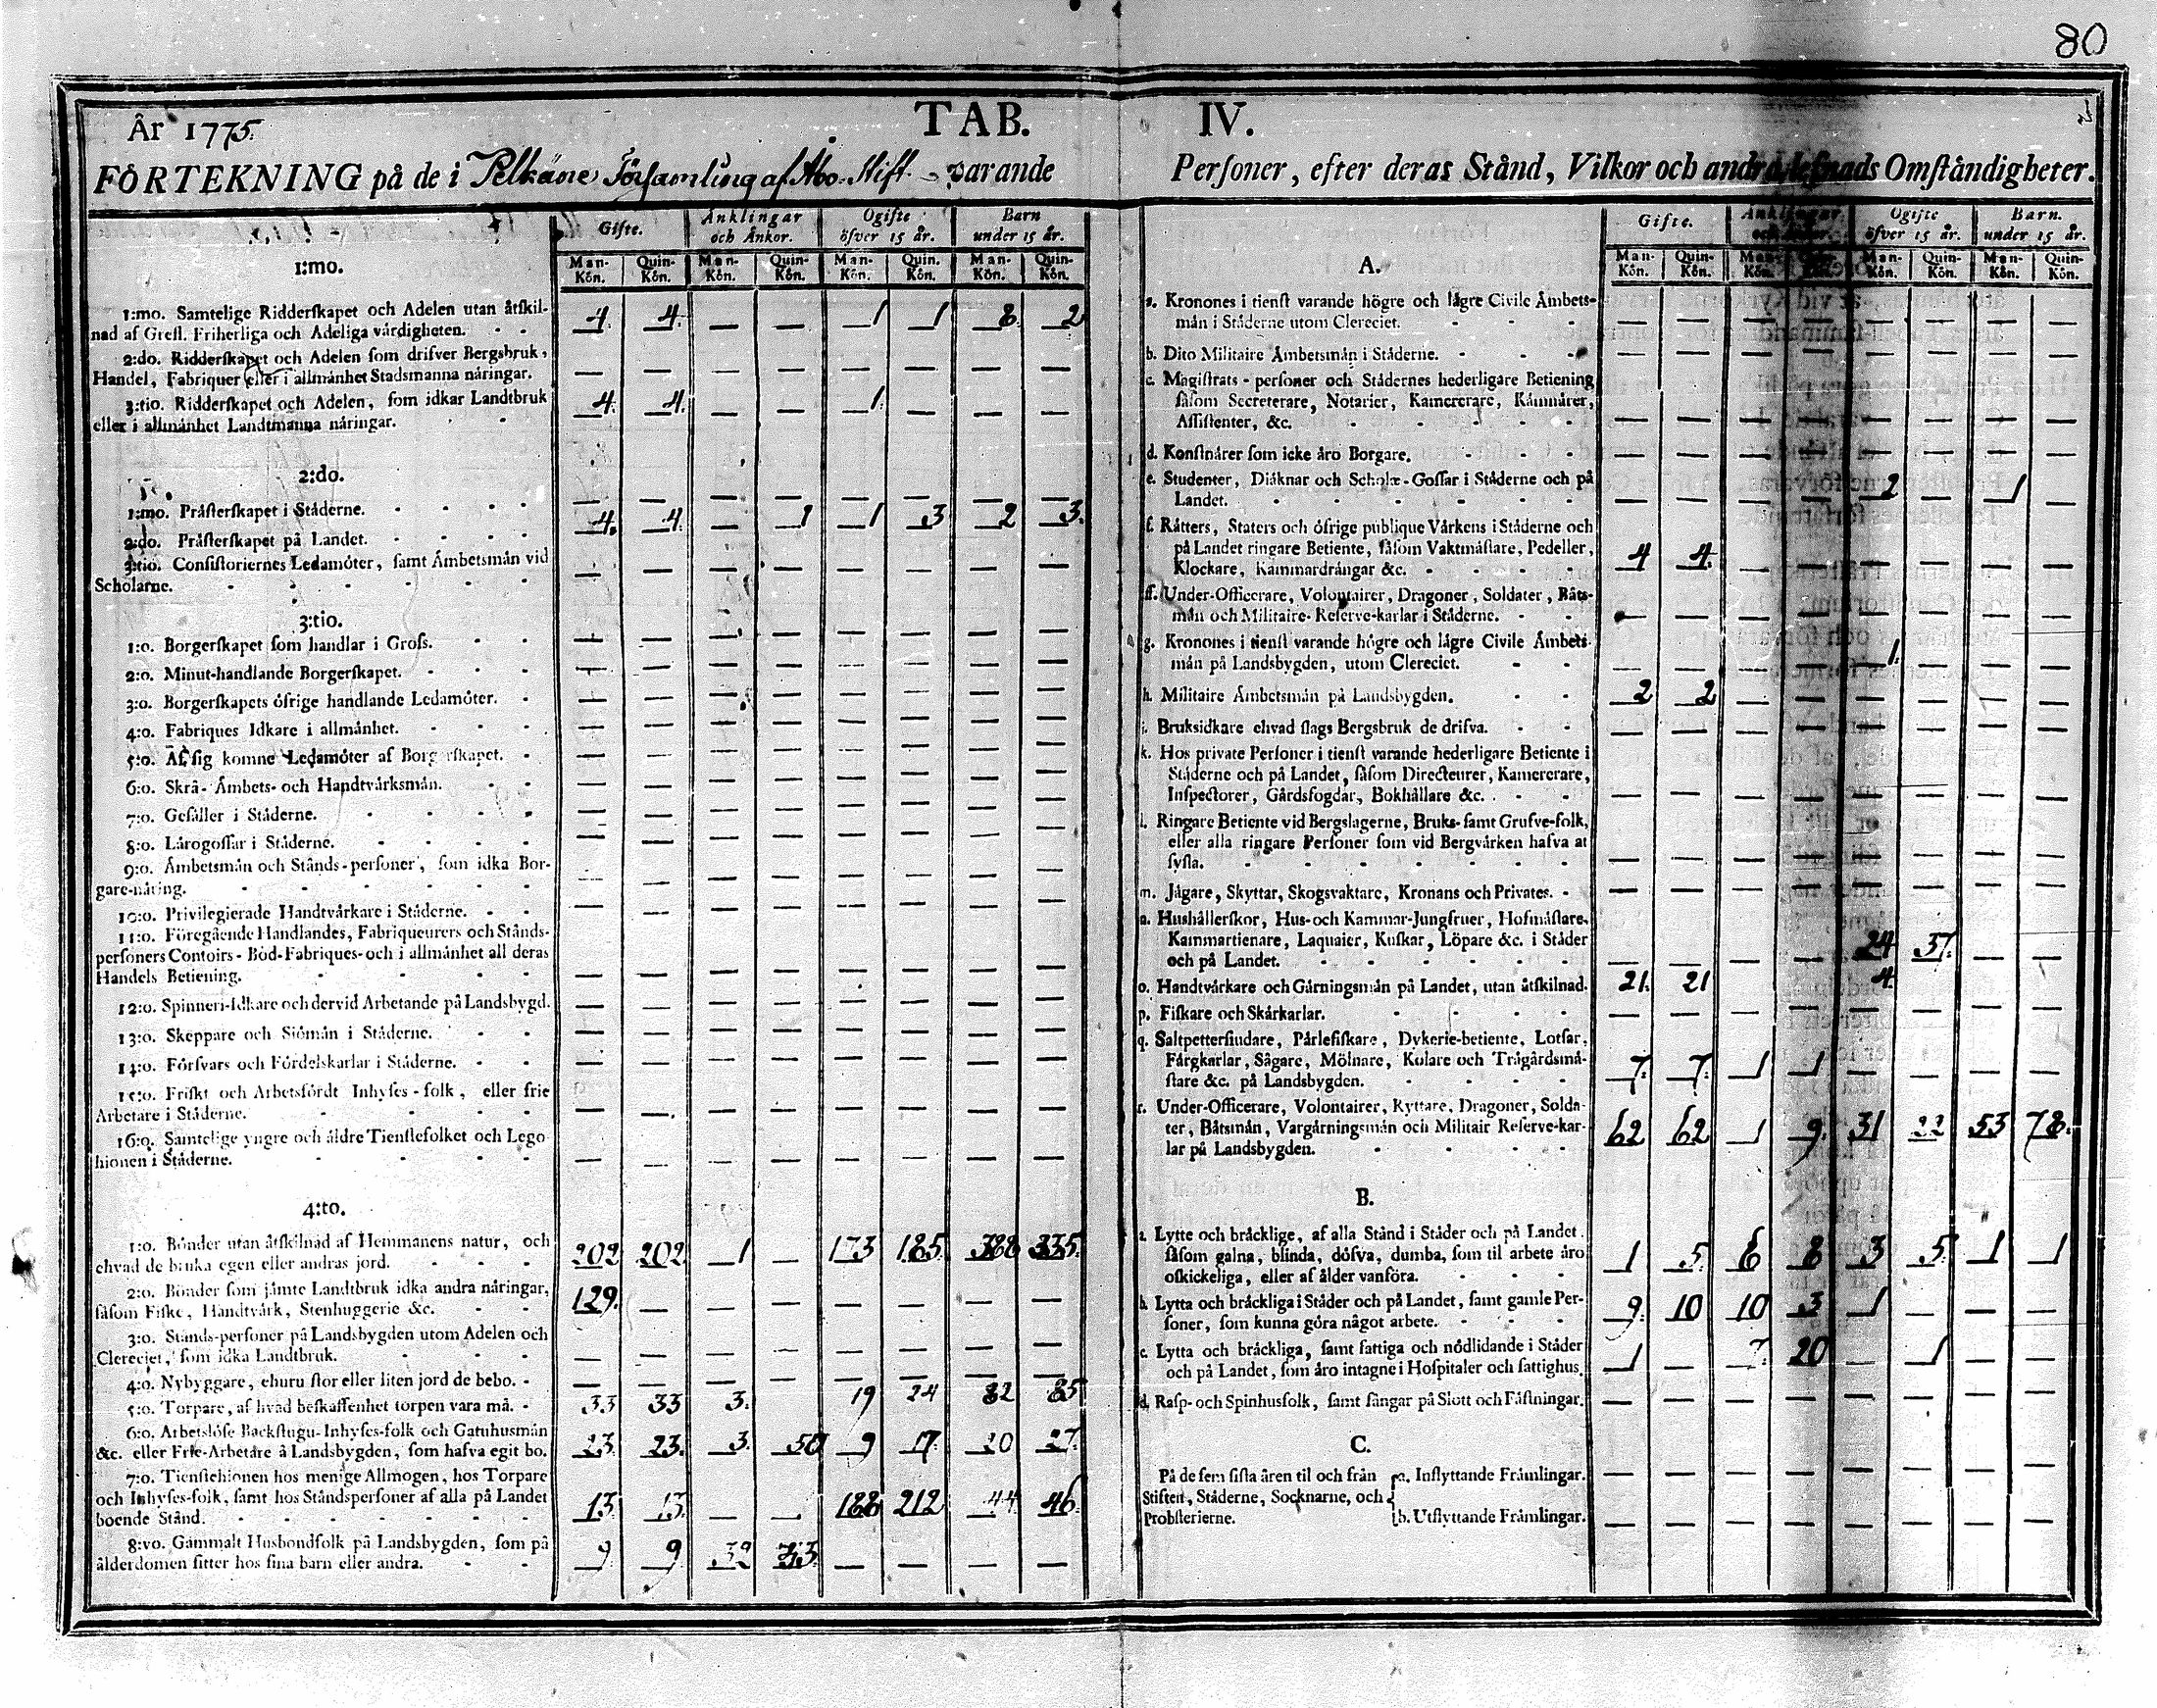 80
År 1775. TAB. IV.
FÖRTEKNING på de i Pelkäne Församling af Åbo Stift varande Personer, efter deras Stånd, Vilkor och andra lefnads Omståndigheter.
Gifte. Änklingar Ogifte Barn
och Änkor. öfver 15 år. under 15 år.
Man- Quin- Man- Quin- Man- Quin. Man- Quin-
Kön. Kön. Kön. Kön. Kön. Kön. Kön. Kön.
1:mo.
1:mo. Samtelige Ridderskapet och Adelen utan åtskil-
nad af Grefl. Friherliga och Adeliga vårdigheten. - - 4. 4. — — 1 1 8. 2
2:do. Ridderskapet och Adelen som drifver Bergsbruk,
Handel, Fabriquer eller i allmånhet Stadsmanna nåringar. — — — — — — — —
3:tio. Ridderskapet och Adelen, som idkar Landtbruk
eller i allmånhet Landtmanna nåringar. - - 4. 4. — — 1. — — —
2:do.
1:mo. Pråsterskapet i Ståderne. - - - - — — — — — — — —
2:do. Pråsterskapet på Landet. - - - - 4. 4. — 1 1 3 2 3.
3:tio. Consistoriernes Ledamöter, samt Åmbetsmån vid
Scholarne. - - - - — — — — — — — —
3:tio.
1:o. Borgerskapet som handlar i Gross. - - — — — — — — — —
2:o. Minut-handlande Borgerskapet. - - - — — — — — — — —
3:o. Borgerskapets öfrige handlande Ledamöter. - — — — — — — — —
4:o. Fabriques Idkare i allmånhet. - - - — — — — — — — —
5:o. Af sig komne Ledamöter af Borgerskapet. - — — — — — — — —
6:o. Skrå- Åmbets- och Handtvårksmån. - - — — — — — — — —
7:o. Gesåller i Ståderne. - - - - — — — — — — — —
8:o. Lårogossar i Ståderne. - - - - — — — — — — — —
9:o. Åmbetsmån och Stånds-personer, som idka Bor-
gare-nåring. - - - - - — — — — — — — —
10:o. Privilegierade Handtvårkare i Ståderne. - - — — — — — — — —
11:o. Föregående Handlandes, Fabriqueurers och Stånds-
personers Contoirs- Bod-Fabriques- och i allmånhet all deras
Handels Betiening. - - - - — — — — — — — —
12:o. Spinneri-Idkare och dervid Arbetande på Landsbygd. — — — — — — — —
13:o. Skeppare och Siömån i Ståderne. - - — — — — — — — —
14:o. Försvars och Fördelskarlar i Ståderne. - - — — — — — — — —
15:o. Friskt och Arbetsfördt Inhyses-folk, eller frie
Arbetare i Ståderne. - - - - — — — — — — — —
16:o. Samtelige yngre och åldre Tienstefolket och Lego
hionen i Ståderne. - - - - — — — — — — — —
4:to.
1:o. Bönder utan åtskilnad af Hemmanens natur, och
ehvad de bruka egen eller andras jord. - - - 202 202 1 — 173 185. 388 335.
2:o. Bönder som jåmte Landtbruk idka andra nåringar,
såsom Fiske, Handtvårk, Stenhuggerie &c. - - 129. — — — — — — —
3:o. Stånds-personer på Landsbygden utom Adelen och
Clereciet, som idka Landtbruk. - - - — — — — — — — —
4:o. Nybyggare, ehuru stor eller liten jord de bebo. - — — — — — — — —
5:o. Torpare, af hvad beskaffenhet torpen vara må. - 33 33 3. 19 24 82 85
6:o. Arbetslöse Backstugu-Inhyses-folk och Gatuhusmån
&c. eller Frie-Arbetare å Landsbygden, som hafva egit bo. 23. 23. 3. 50 9 17. 20 27.
7:o. Tienstehionen hos menige Allmogen, hos Torpare
och Inhyses-folk, samt hos Ståndspersoner af alla på Landet
boende Stånd. - - - - - 13. 13. — — 188 212 44 46.
8:vo. Gammalt Husbondfolk på Landsbygden, som på
ålderdomen sitter hos sina barn eller andra. - - 9. 9. 32 — — — —
Gifte. Änklingar Ogifte Barn.
och Änkor. öfver 15 år. under 15 år.
Man- Quin- Man- Quin- Man- Quin- Man- Quin-
Kön. Kön. Kön. Kön. Kön. Kön. Kön. Kön.
A.
a. Kronones i tienst varande högre och lågre Civile Åmbets-
mån i Ståderne utom Clereciet. - - - — — — — — — — —
b. Dito Militaire Åmbetsmån i Ståderne. - - - — — — — — — — —
c. Magistrats-personer och Stådernes hederligare Betiening
såsom Secreterare, Notarier, Kamererare, Kåmnårer,
Assistenter, &c. - - - - — — — — — — — —
d. Konstnårer som icke åro Borgare. - - - — — — — — — — —
e. Studenter, Diåknar och Scholæ-Gossar i Ståderne och på
Landet. - - - - - — — — — 2 — 1 —
f. Råtters, Staters och öfrige publique Vårkens i Ståderne och
på Landet ringare Betiente, såsom Vaktmåstare, Pedeller,
Klockare, Kammardrångar &c. - - - - 4 4. — — — — — —
ff. Under-Officerare, Volontairer, Dragoner, Soldater, Båts-
mån och Militaire-Reserve-karlar i Ståderne. - - — — — — — — — —
g. Kronones i tienst varande högre och lågre Civile Åmbets-
mån på Landsbygden, utom Clereciet. - - — — — — 1. — — —
h. Militaire Åmbetsmån på Landsbygden. - - 2 2 — — — — — —
i. Bruksidkare ehvad slags Bergsbruk de drifva. - - — — — — — — — —
k. Hos private Personer i tienst varande hederligare Betiente i
Ståderne och på Landet, såsom Directeurer, Kamererare,
Inspectorer, Gårdsfogdar, Bokhållare &c. - - — — — — — — — —
l. Ringare Betiente vid Bergslagerne, Bruks- samt Grufve-folk,
eller alla ringare Personer som vid Bergvårken hafva at
sysla. - - - - - — — — — — — — —
m. Jågare, Skyttar, Skogsvaktare, Kronans och Privates. - — — — — — — — —
n. Hushållerskor, Hus- och Kammar-Jungfruer, Hofmåstare,
Kammartienare, Laquaier, Kuskar, Löpare &c. i Ståder
och på Landet. - - - - - — — — — 24 37. — —
o. Handtvårkare och Gårningsmån på Landet, utan åtskilnad. 21. 21 4.
p. Fiskare och Skårkarlar. - - - - — — — — — — — —
q. Saltpettersiudare, Pårlefiskare, Dykerie-betiente, Lotsar,
Fårgkarlar, Sågare, Mölnare, Kolare och Trågårdsmå-
stare &c. på Landsbygden. - - - - 7. 7. 1 1 — — — —
r. Under-Officerare, Volontairer, Ryttare, Dragoner, Solda-
ter, Båtsmån, Vargårningsmån och Militair Reserve-kar-
lar på Landsbygden. - - - - 62 62 1 9. 31 22 53 78.
B.
a. Lytte och bråcklige, af alla Stånd i Ståder och på Landet
såsom galna, blinda, döfva, dumba, som til arbete åro
oskickeliga, eller af ålder vanföra. - - - 1 5. 6 8 3 5. 1 1
b. Lytta och bråckliga i Ståder och på Landet, samt gamle Per-
soner, som kunna göra något arbete. - - - 9. 10 10 3 1 — — —
c. Lytta och bråckliga, samt fattiga och nödlidande i Ståder
och på Landet, som åro intagne i Hospitaler och fattighus. 1 — 7. 20 — 1 — —
d. Rasp- och Spinhusfolk, samt fångar på Slott och Fåstningar. — — — — — — — —
C.
På de fem sista åren til och från a. Inflyttande Fråmlingar. — — — — — — — —
Stiften, Ståderne, Socknarne, och
Probsterierne. b. Utflyttande Fråmlingar. — — — — — — — —